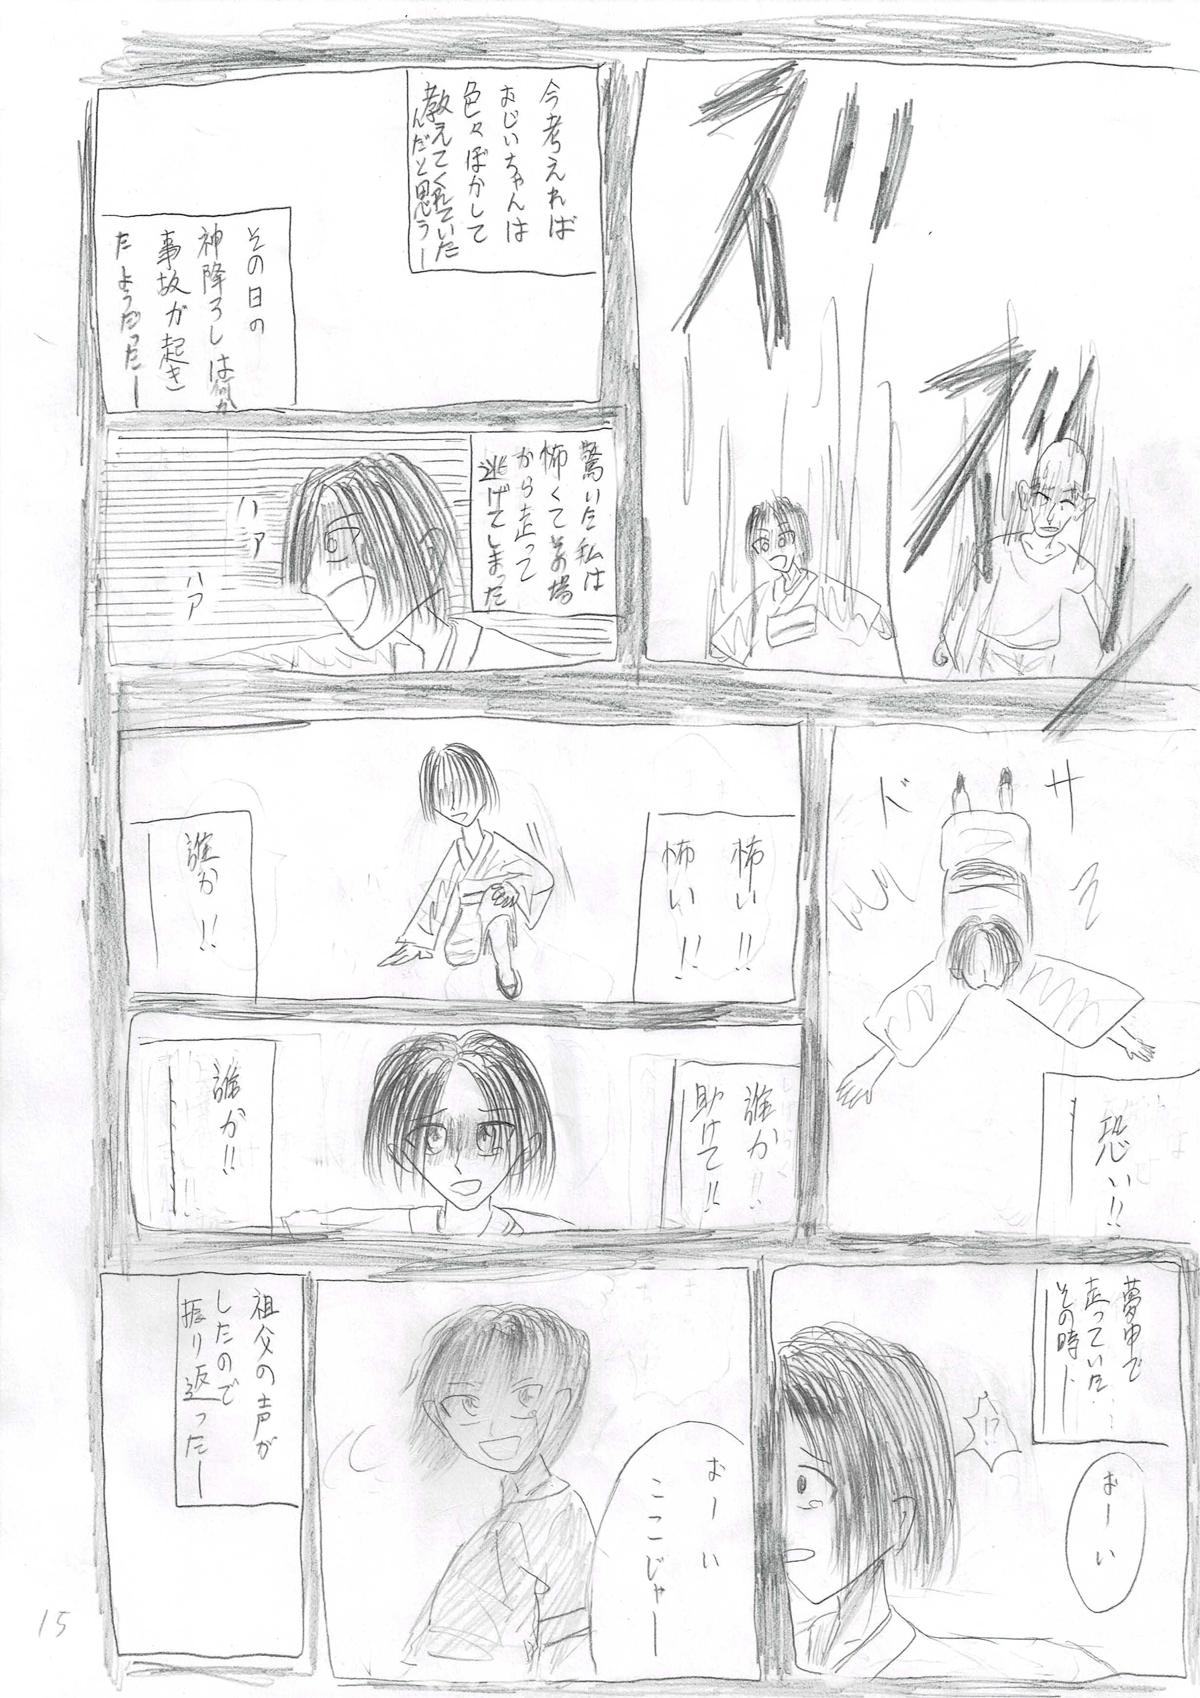 ズッ
ズッ
今考えれば
おじいちゃんは
色々ぼかして
教えてくれていた
んだと思うー
その日の
神降ろしは何か
事故が起き
たようだったー
驚いた私は
怖くてその場
から走って
逃げてしまった
ハァ
ハァ
ドサ
恐い!!
怖い!!
怖い!!
誰か!!
誰か!!
助けて!!
誰か!!
夢中で
走っていた…
その時ー
おーい
!?
おーい
ここじゃー
祖父の声が
したので
振り返ったー
15